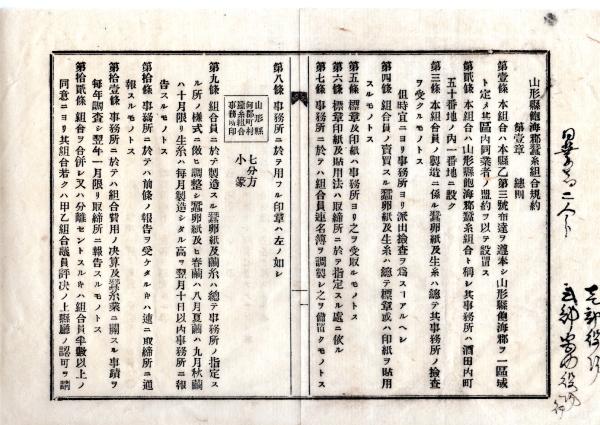 山形縣飽海郡蠶糸組合規約
第壹章　總則
第壹條　本組合ハ本縣乙第三號布達ヲ遵奉シ山形縣飽海郡ヲ一區域
ト定メ其區内同業者ノ盟約ヲ以テ設置ス
第貳條　本組合ハ山形縣飽海郡蠶糸組合ト稱シ其事務所ハ酒田内町
五十番地ノ内一番地ニ設ク
第三條　組合員ノ製造ニ係ル蠶卵紙及生糸ハ總テ其事務所ノ檢查
ヲ受クルモノトス
但時宜ニヨリ派出檢查ヲ爲スコアルヘシ
第四條　組合員ノ賣買スル蠶卵紙及生糸ハ總テ標章或ハ印紙ヲ貼用
スルモノトス
第五條　標章及印紙ハ事務所ヨリ之ヲ受取ルモノトス
第六條　標章印紙及貼用法ハ取締所ニ於テ指定スル處ニ依ル
第七條　事務所ニ於テハ組合員連名簿ヲ調製シ之ヲ備置クモノトス
第八條　事務所ニ於テ用フル印章ハ左ノ如シ
山形縣
何郡町村
蠶糸組合
事務所印
七分方
小篆
第九條　組合員ニ於テ製造スル蠶卵紙及繭糸ハ總テ事務所ノ指定ス
ル所ノ樣式ニ倣ヒ調整シ蠶卵紙及ヒ春繭ハ八月夏繭ハ九月秋繭
ハ十月限リ生糸ハ毎月製造シタル高ヲ翌月十日以内事務所ニ報
告スルモノトス
第拾條　事務所ニ於テハ前條ノ報告ヲ受ケタルキハ速ニ取締所ニ通
報スルモノトス
第拾壹條　事務所ニ於テハ組合費用ノ決算及蠶糸業ニ關スル事蹟ヲ
毎年調查シ翌年一月限リ取締所ニ報告スルモノトス
第拾貳條　組合ヲ合併シ又ハ分離セントスルキハ組合員半數以上ノ
同意ニヨリ其組合若クハ甲乙組合議員評決ノ上縣廳ノ認可ヲ請